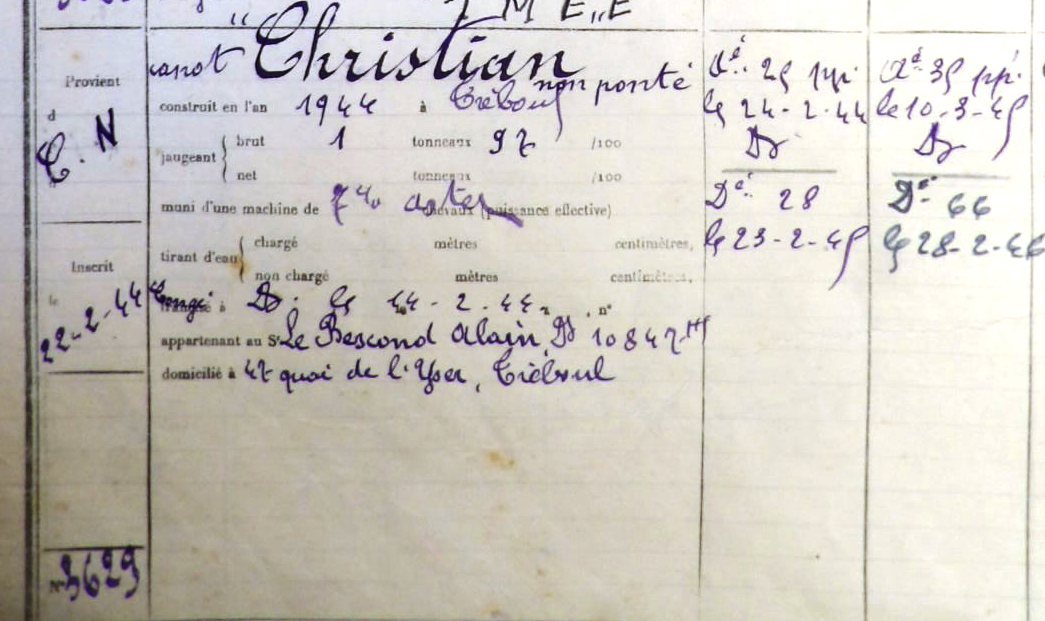 Provient
d
C. N
Inscrit
le
22-2-44
N° 3629
canot "Christian
non ponté
construit en l'an 1944 à Tréboul
jaugeant { brut 1 tonneaux 97 /100
net tonneaux /100
muni d'une machine de chevaux (puissance effective)
tirant d'eau { chargé mètres centimètres,
non chargé mètres centimètres,
Congé à Dz. le 14-2-44, n°
appartenant au Sr Le Bescond Alain, Dz 10847
domicilié à 47 quai de l'Yser, Tréboul
At. 29
le 24-2-44
Dz
Dt. 28
le 23-2-45
At. 39
le 10-3-45
Dz
Dt. 66
le 28-2-46